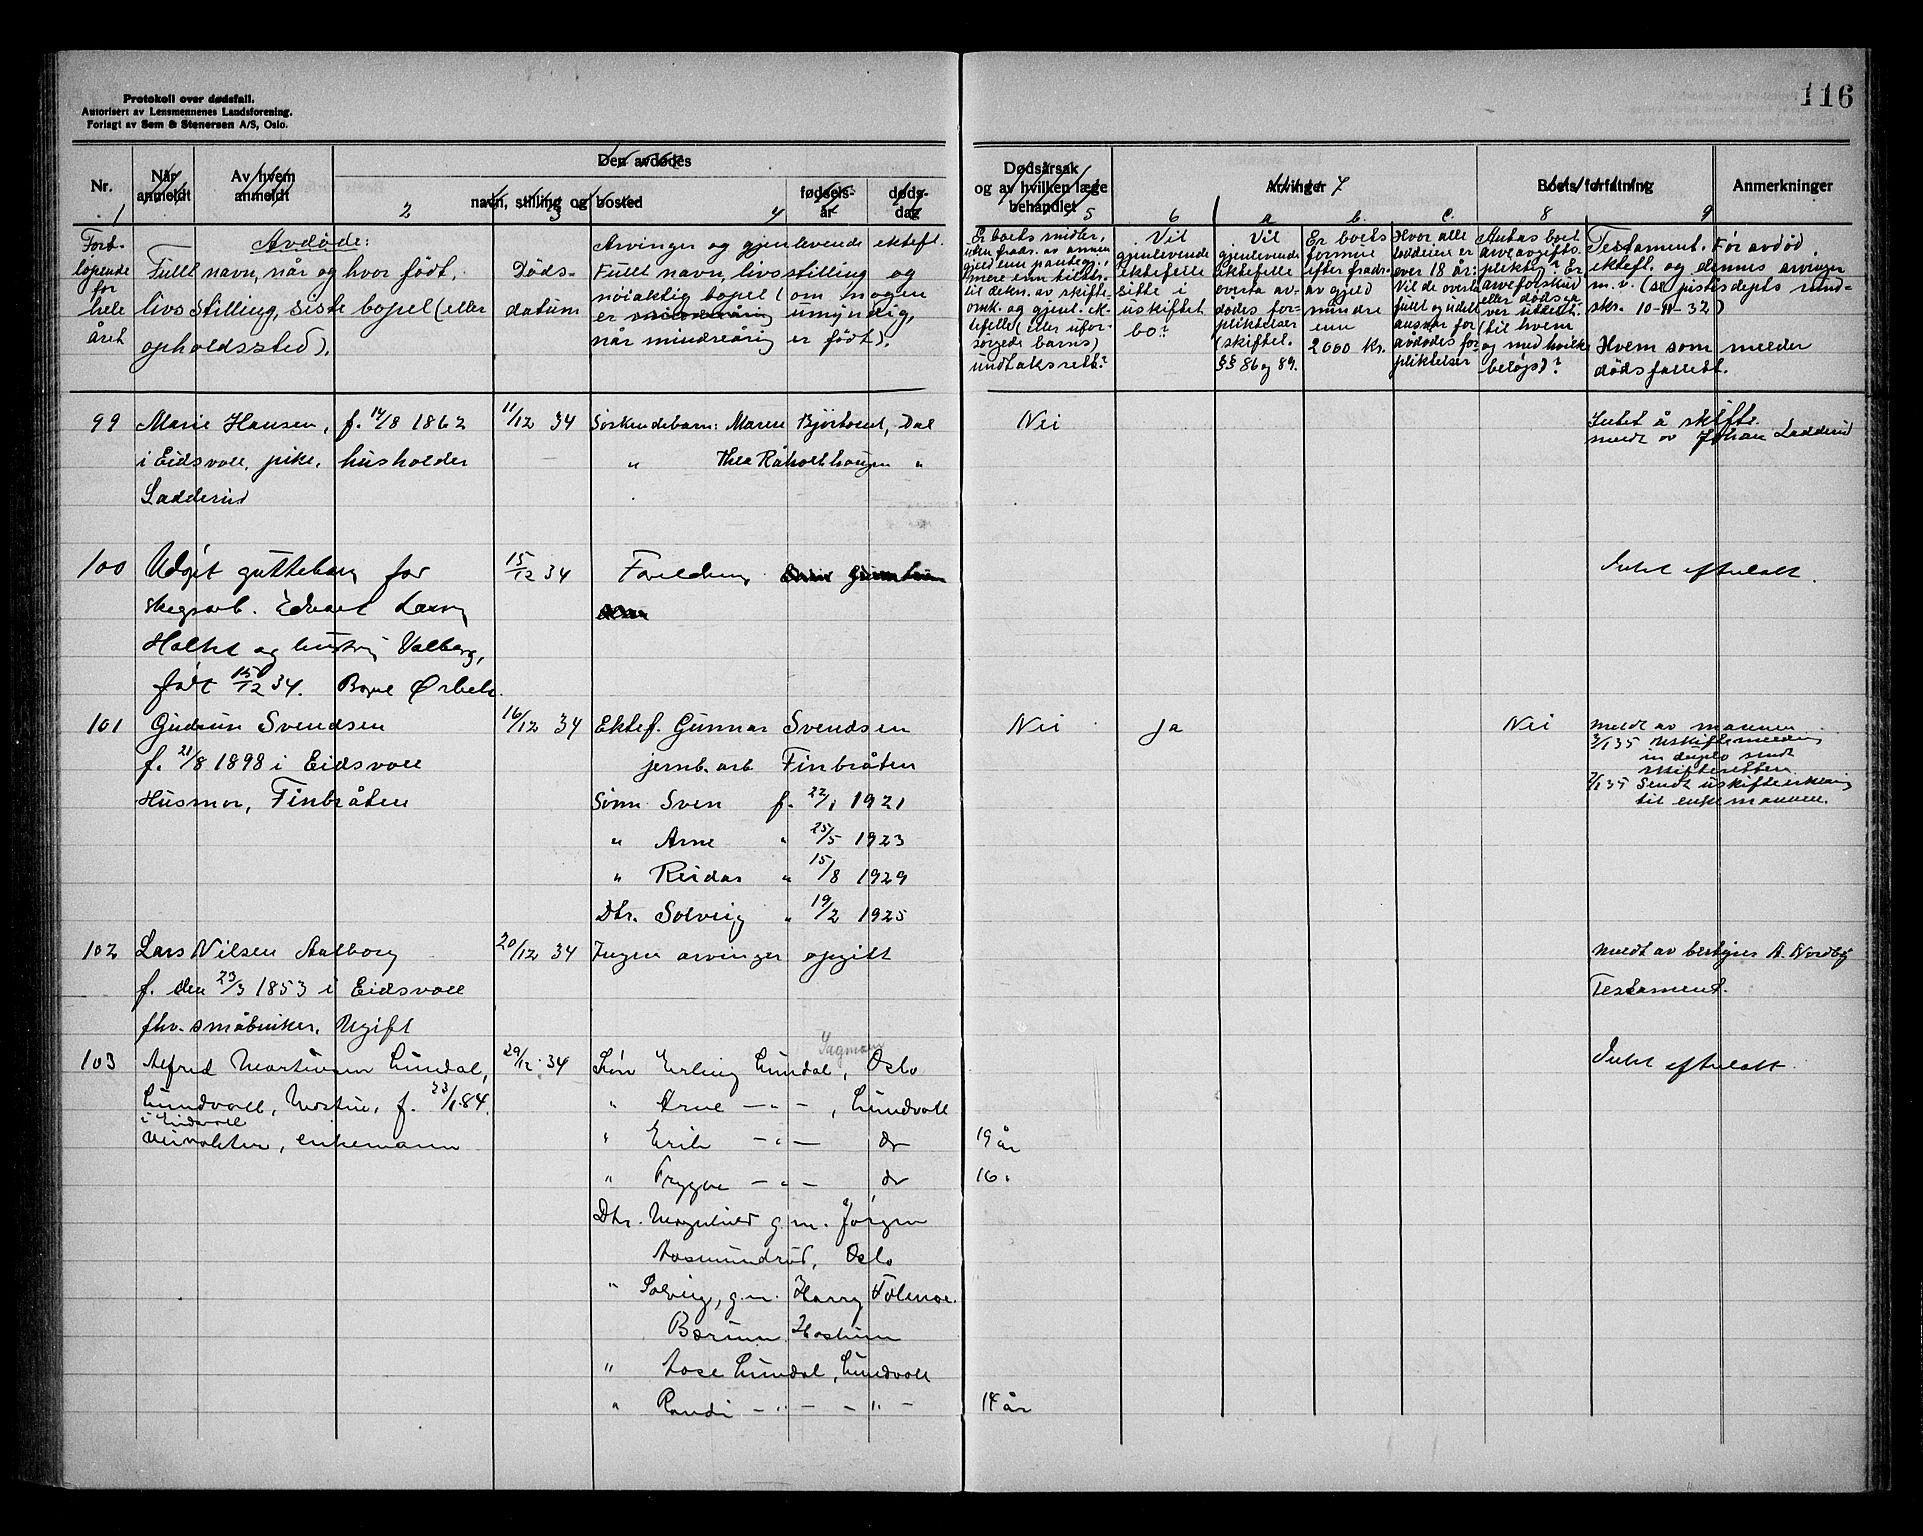 Protokoll over dødsfall.
Autorisert av Lensmennenes Landsforening.
Forlagt av Sem & Stenersen A/S, Oslo.
116
Nr.
Når anmeldt
Av hvem anmeldt
Den avdødes
navn, stilling og bosted
fødsels-år
døds-dag
Dødsårsak
og av hvilken læge
behandlet
Arvinger
Boets forfatning
Anmerkninger
1 2 3 4 5 6 7 a b. c. 8 9
Fort-
løpende
for
hele
året
Avdøde:
Fullt navn, når og hvor født,
livsstilling, siste bopel (eller
opholdssted).
Døds-
datum
Arvinger og gjenlevende ektef.
Fullt navn, livsstilling og
nøiaktig bopel (om nogen
er mindreårig umyndig,
når mindreårig er født).
Er boets midler,
uten frads. av annen
gjeld enn pantegj.,
mere enn tilstr.
til dekn. av skifte-
omk. og gjenl. ek-
tefelle (eller ufor-
sørgede barns)
undtaksrett?
Vil
gjenlevende
ektefelle
sitte i
uskiftet
bo?
Vil
gjenlevende
ektefelle
overta av-
dødes for-
pliktelser
(skiftel.
§§ 86 og 89.
Er boets
formue
efter frads.
av gjeld
mindre
enn
2000 kr.
Hvor alle
loddeiere er
over 18 år:
Vil de overta
fullt og udelt
ansvar for
avdødes for-
pliktelser
Antas boet
arveavgifts-
pliktig? Er
arveforskudd
eller dødsga-
ver utdelt
(til hvem
og med hvilke
beløp)?
Testament. Før avdød
ektef. og dennes arvinger
m. v. (se justisdepts rund-
skr. 10-11-32)
Hvem som melder
dødsfallet.
99 Marie Hansen, f. 14/8 1862 11/12 34 Søskendebarn: Maren Bjørtomt, Dal Nei Intet å skifte.
meldt av Johan Ladderud
i Eidsvoll, pike, husholder " Thea Råholthaugen "
Ladderud
100 Udøpt guttebarn for 15/12 34 Foreldrene Intet efterlatt.
skogsarb. Edvart Larsen
Holtet og hustru Valborg,
født 15/12 34. Bopel Ørbek.
101 Gudrun Svendsen 16/12 34 Ektef. Gunnar Svendsen Nei Ja Nei Meldt av mannen
f. 21/8 1898 i Eidsvoll jernb.arb Finbråten
3/1 35 Uskiftemelding
in duplo sendt
skifteretten
Husmor, Finbråten Sønn Sven f. 22/1 1921
7/1 35 Sendt uskifteerklæring
til enkemannen.
" Arne " 25/5 1923
" Reidar " 15/8 1929
Dtr. Solveig " 19/2 1925
102 Lars Nilsen Aalborg 20/12 34 Ingen arvinger opgitt Meldt av bestyrer A. Nordby
f. den 23/3 1853 i Eidsvoll Testament.
fhv. småbruker. Ugift
Sagmann
103 Alfred Martinsen Lundal, 29/12 34 Søn Erling Lundal, Oslo Intet efterlatt.
Lundvoll, f. 23/1 84. " Arne — " — , Lundvoll
i Eidsvoll
Veivokter, enkemann " Erik — " — do 19 år
" Trygve — " — do 16 "
Dtr. Magnhild g.m. Jørgen
Aasmundrud, Oslo
" Solveig, g.m. Harry
Bærum Haslum
" Aase Lundal, Lundvoll
" Randi — " — " — 14 år